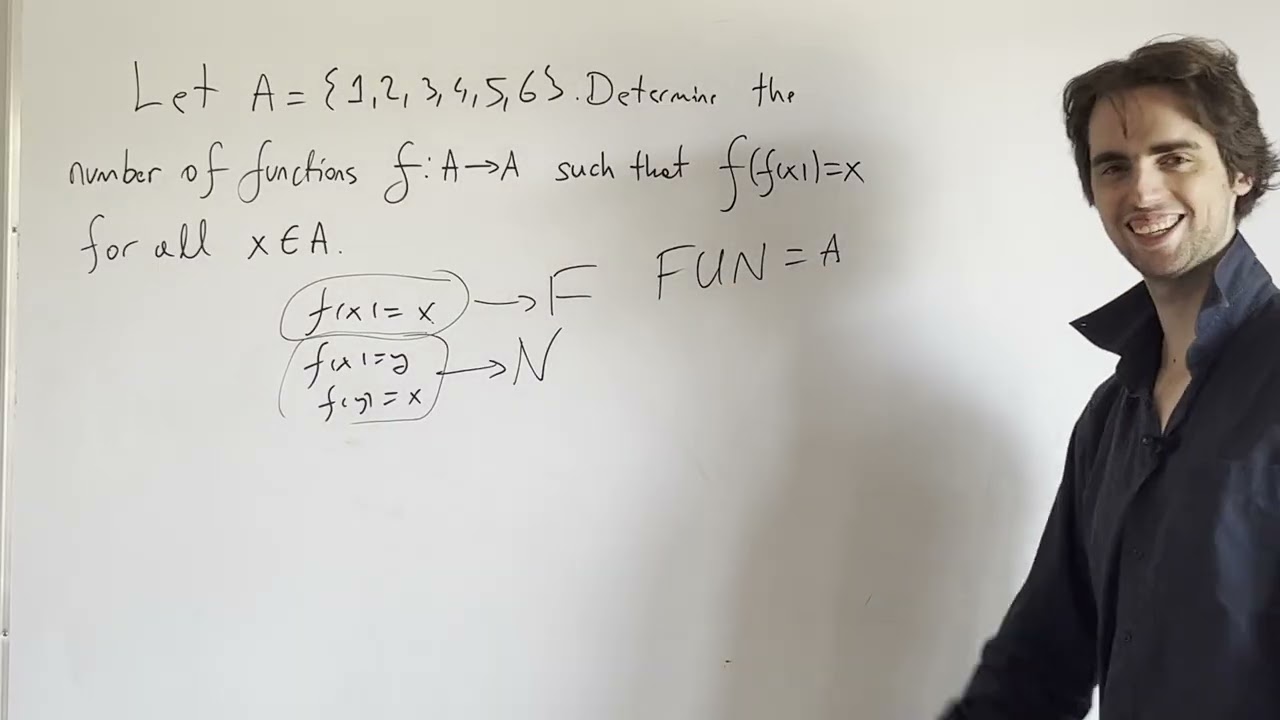 Let A = {1,2,3,4,5,6}. Determine the
number of functions f: A→A such that f(f(x))=x
for all x∈A.
f(x)=x → F
FUN = A
f(x)=y → N
f(y)=x